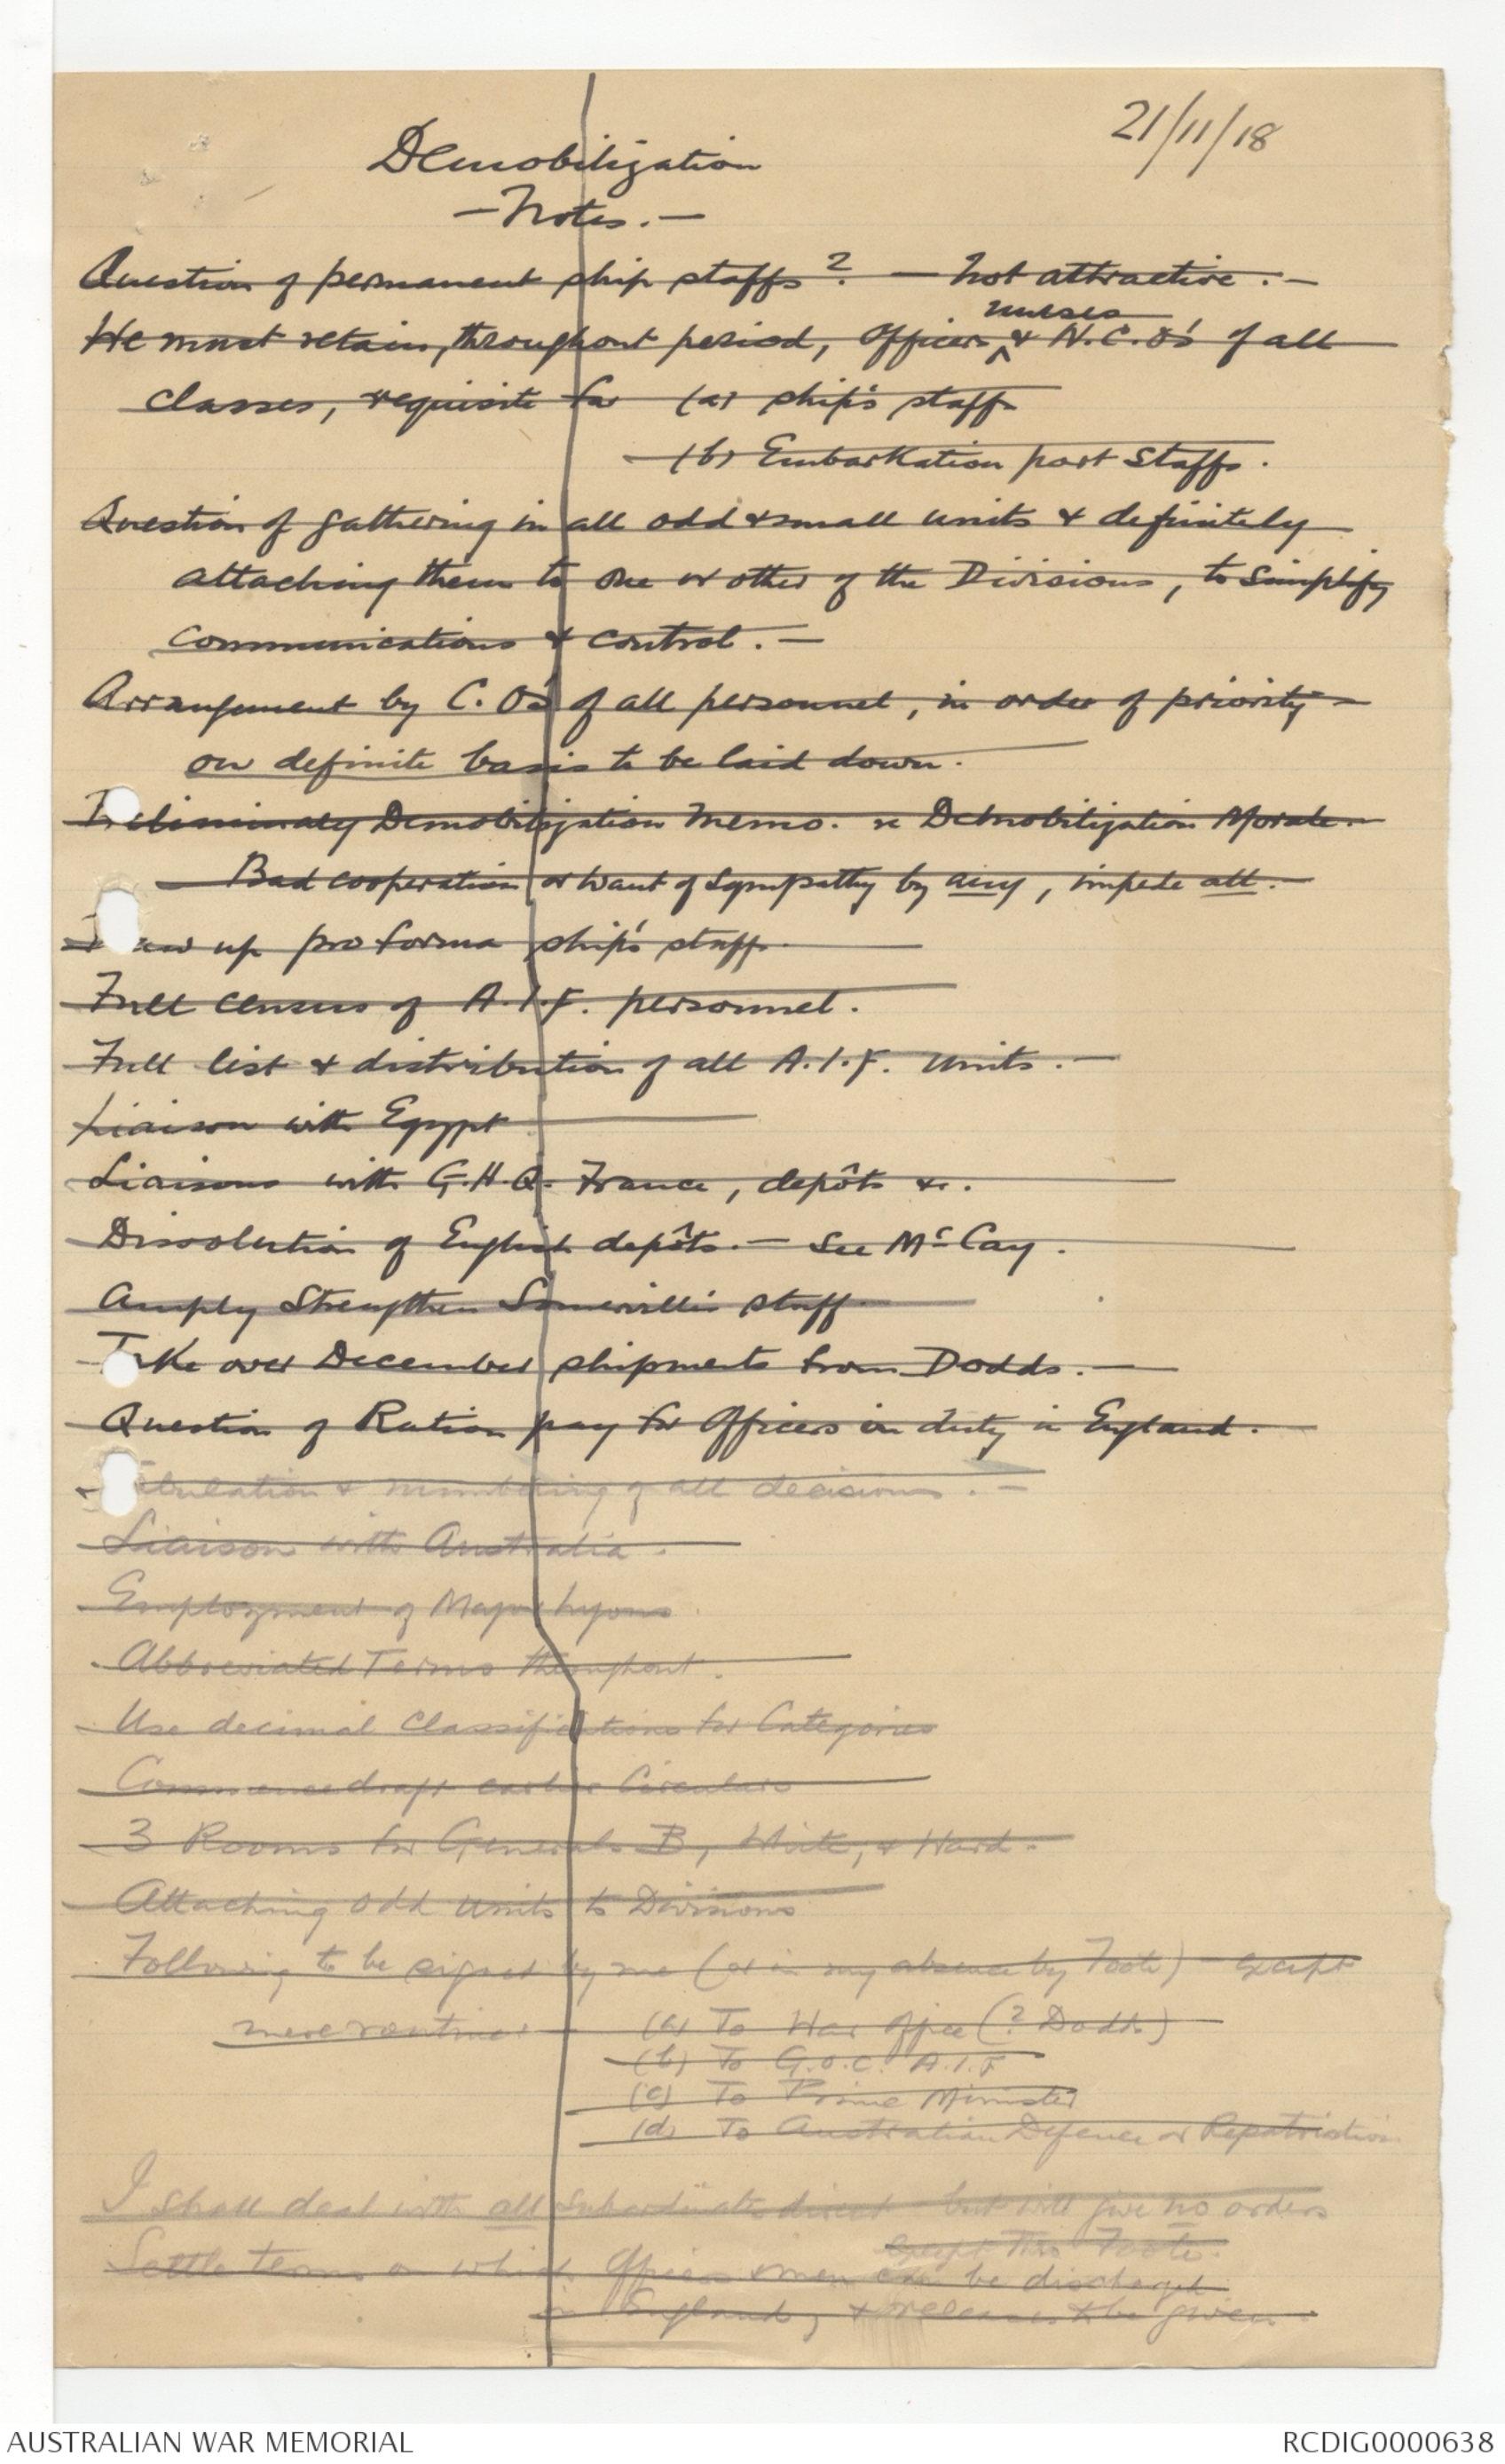 21/11/18
Demobilization
— Notes. —
Question of permanent ship staffs? — Not attractive. —
nurses
We must retain, throughout period, Officers & N.C.O's of all
classes, requisite for (a) ship's staff
(b) Embarkation port Staffs.
Question of gathering in all odd & small units & definitely
attaching them to one or other of the Divisions, to simplify
communications & control. —
Arrangement by C.O's of all personnel, in order of priority —
on definite basis to be laid down.
Preliminary Demobilization Memo. re Demobilization Morale. —
Bad cooperation or want of sympathy by any, impede all. —
Draw up pro forma ship's staff.
Full census of A.I.F. personnel.
Full list & distribution of all A.I.F. units. —
Liaison with Egypt
Liaison with G.H.Q. France, depôts &c.
Dissolution of English depôts. — See McCay.
Amply strengthen Somerville's staff.
Take over December shipments from Dodds. —
Question of Ration pay for Officers on duty in England.
Tabulation & numbering of all decisions. —
Liaison with Australia.
Employment of Major Lyons.
Abbreviated Terms throughout.
Use decimal classifications for Categories
Commence draft earlier Circulars
3 Rooms for Generals B, White, & Hard.
Attaching odd units to Divisions
Following to be signed by me (or in my absence by Foott) except
mere routine: (a) To War Office (? Dodds)
(b) To G.O.C. A.I.F
(c) To Prime Minister
(d) To Australian Defence or Repatriation
I shall deal with all subordinates direct but will give no orders
except thro' Foott.
Settle terms on which Officers & men can be discharged
in England, & releases to be given.
AUSTRALIAN WAR MEMORIAL
RCDIG0000638